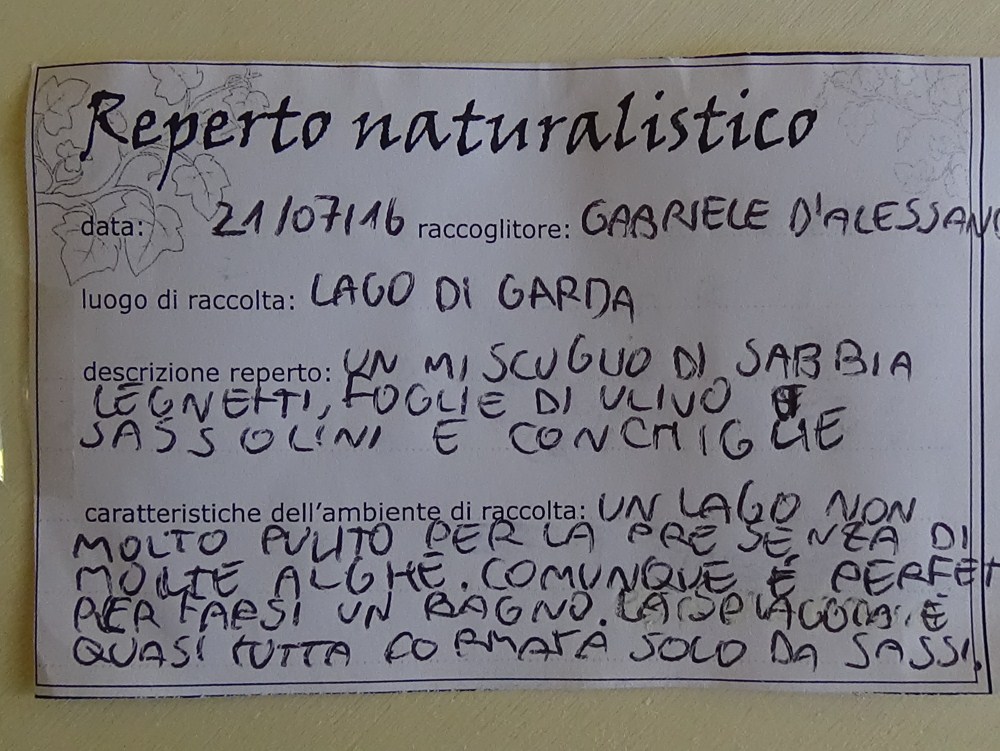 Reperto naturalistico
data: 21/07/16 raccoglitore: GABRIELE D'ALESSAN
luogo di raccolta: LAGO DI GARDA
descrizione reperto: UN MISCUGLIO DI SABBIA
LEGNETTI, FOGLIE DI ULIVO
SASSOLINI E CONCHIGLIE
caratteristiche dell'ambiente di raccolta: UN LAGO NON
MOLTO PULITO PER LA PRESENZA DI
MOLTE ALGHE. COMUNQUE È PERFET
PER FARSI UN BAGNO. LA È
QUASI TUTTA FORMATA SOLO DA SASSI.